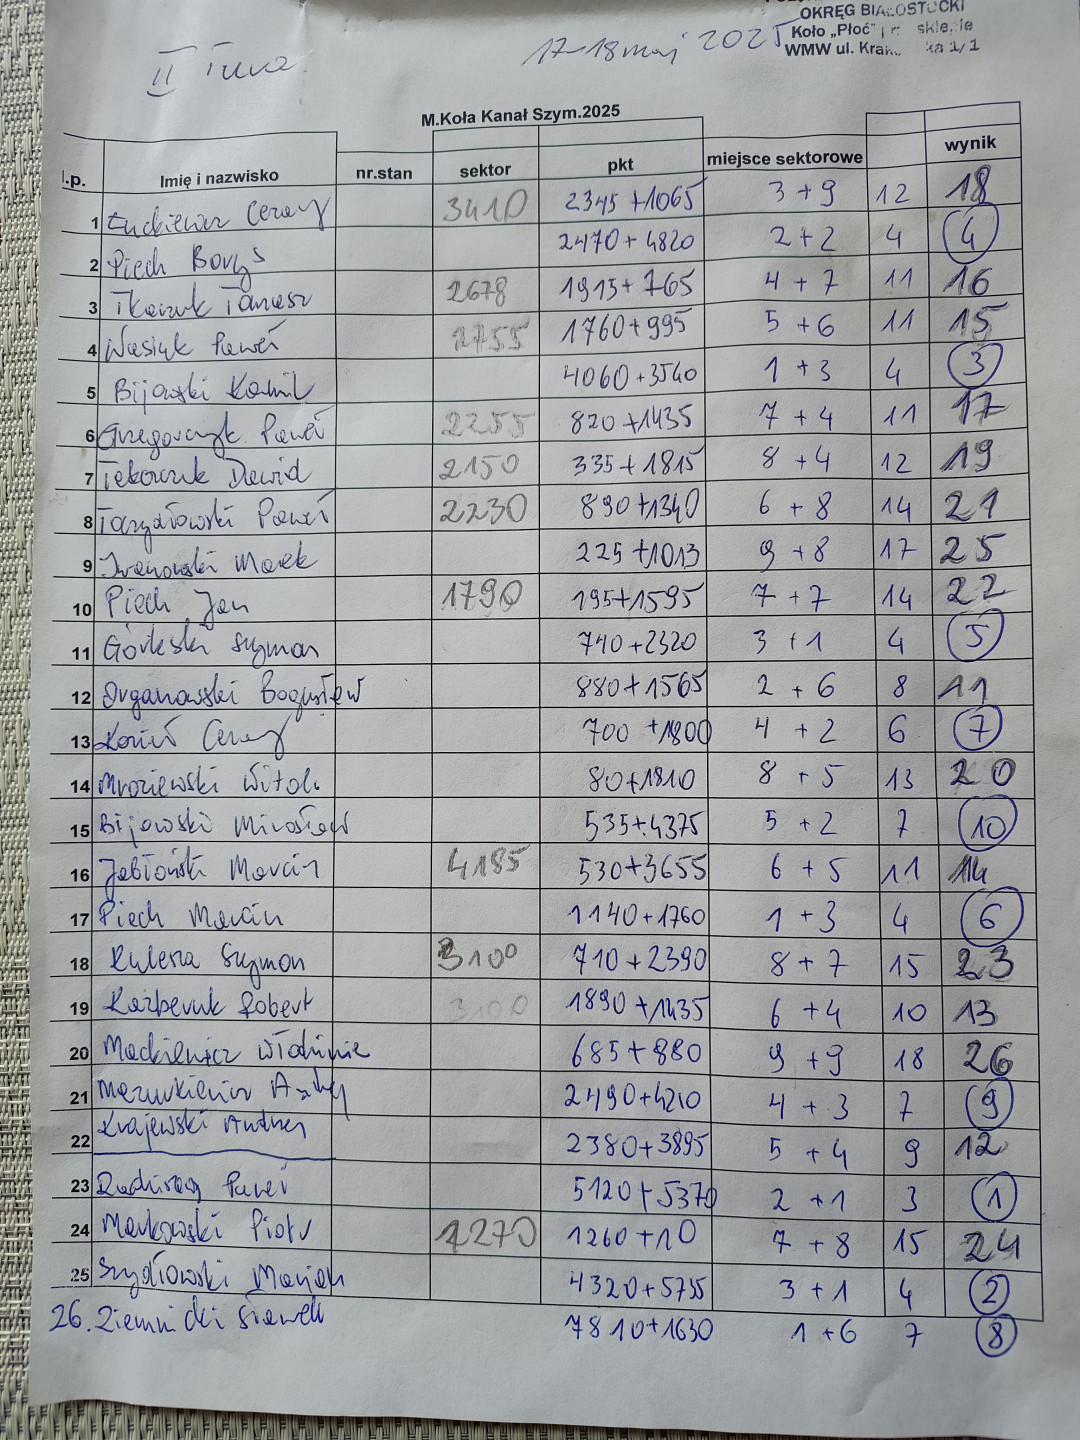 OKRĘG BIAŁOSTOCKI
Koło „Płoć”
WMW ul.
II Tura
17-18 maj 2025
M.Koła Kanał Szym.2025
l.p. Imię i nazwisko nr.stan sektor pkt miejsce sektorowe wynik
1 Cezary 3410 2345+1065 3+9 12 18
2 Piech Borys 2470+4820 2+2 4 4
3 Tkaczuk Tomasz 2678 1915+765 4+7 11 16
4 Wasiluk Paweł 2755 1760+995 5+6 11 15
5 Bijowski Kamil 4060+3540 1+3 4 3
6 Grzegorczyk Paweł 2255 820+1435 7+4 11 17
7 Dawid 2150 335+1815 8+4 12 19
8 Paweł 2230 890+1340 6+8 14 21
9 Iwanowski Marek 225+1013 9+8 17 25
10 Piech Jan 1790 195+1595 7+7 14 22
11 Szymon 740+2320 3+1 4 5
12 Organowski Bogusław 880+1565 2+6 8 11
13 Cezary 700+1800 4+2 6 7
14 Mroziewski Witold 80+1810 8+5 13 20
15 Bijowski Mirosław 535+4375 5+2 7 10
16 Jabłoński Marcin 4185 530+3655 6+5 11 14
17 Piech Marcin 1140+1760 1+3 4 6
18 Kulesza Szymon 3100 710+2390 8+7 15 23
19 Robert 3100 1890+1435 6+4 10 13
20 Mackiewicz 685+880 9+9 18 26
21 Mazurkiewicz 2490+4210 4+3 7 9
22 Krajewski Andrzej 2380+3895 5+4 9 12
23 Paweł 5120+5370 2+1 3 1
24 Markowski Piotr 1270 1260+10 7+8 15 24
25 Szydłowski Marian 4320+5735 3+1 4 2
26. Sławek 7810+1630 1+6 7 8